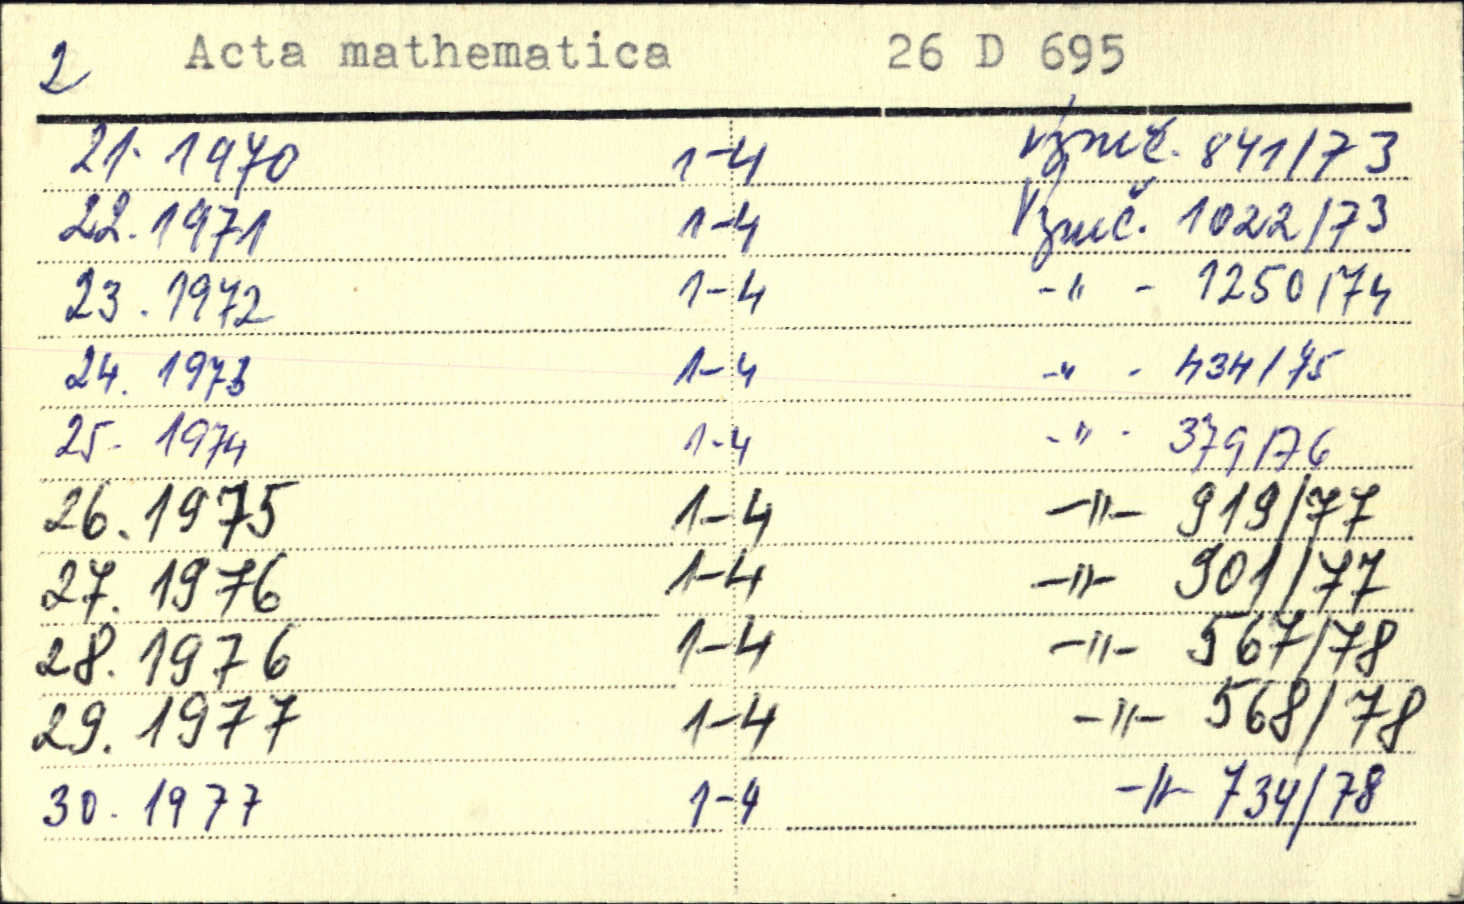 2 Acta mathematica 26 D 695
21. 1970 1-4 Vznič. 841/73
22. 1971 1-4 Vznič. 1022/73
23. 1972 1-4 -"- 1250/74
24. 1973 1-4 -"- 434/75
25. 1974 1-4 -"- 379/76
26. 1975 1-4 -"- 919/77
27. 1976 1-4 -"- 901/77
28. 1976 1-4 -"- 567/78
29. 1977 1-4 -"- 568/78
30. 1977 1-4 -"- 734/78